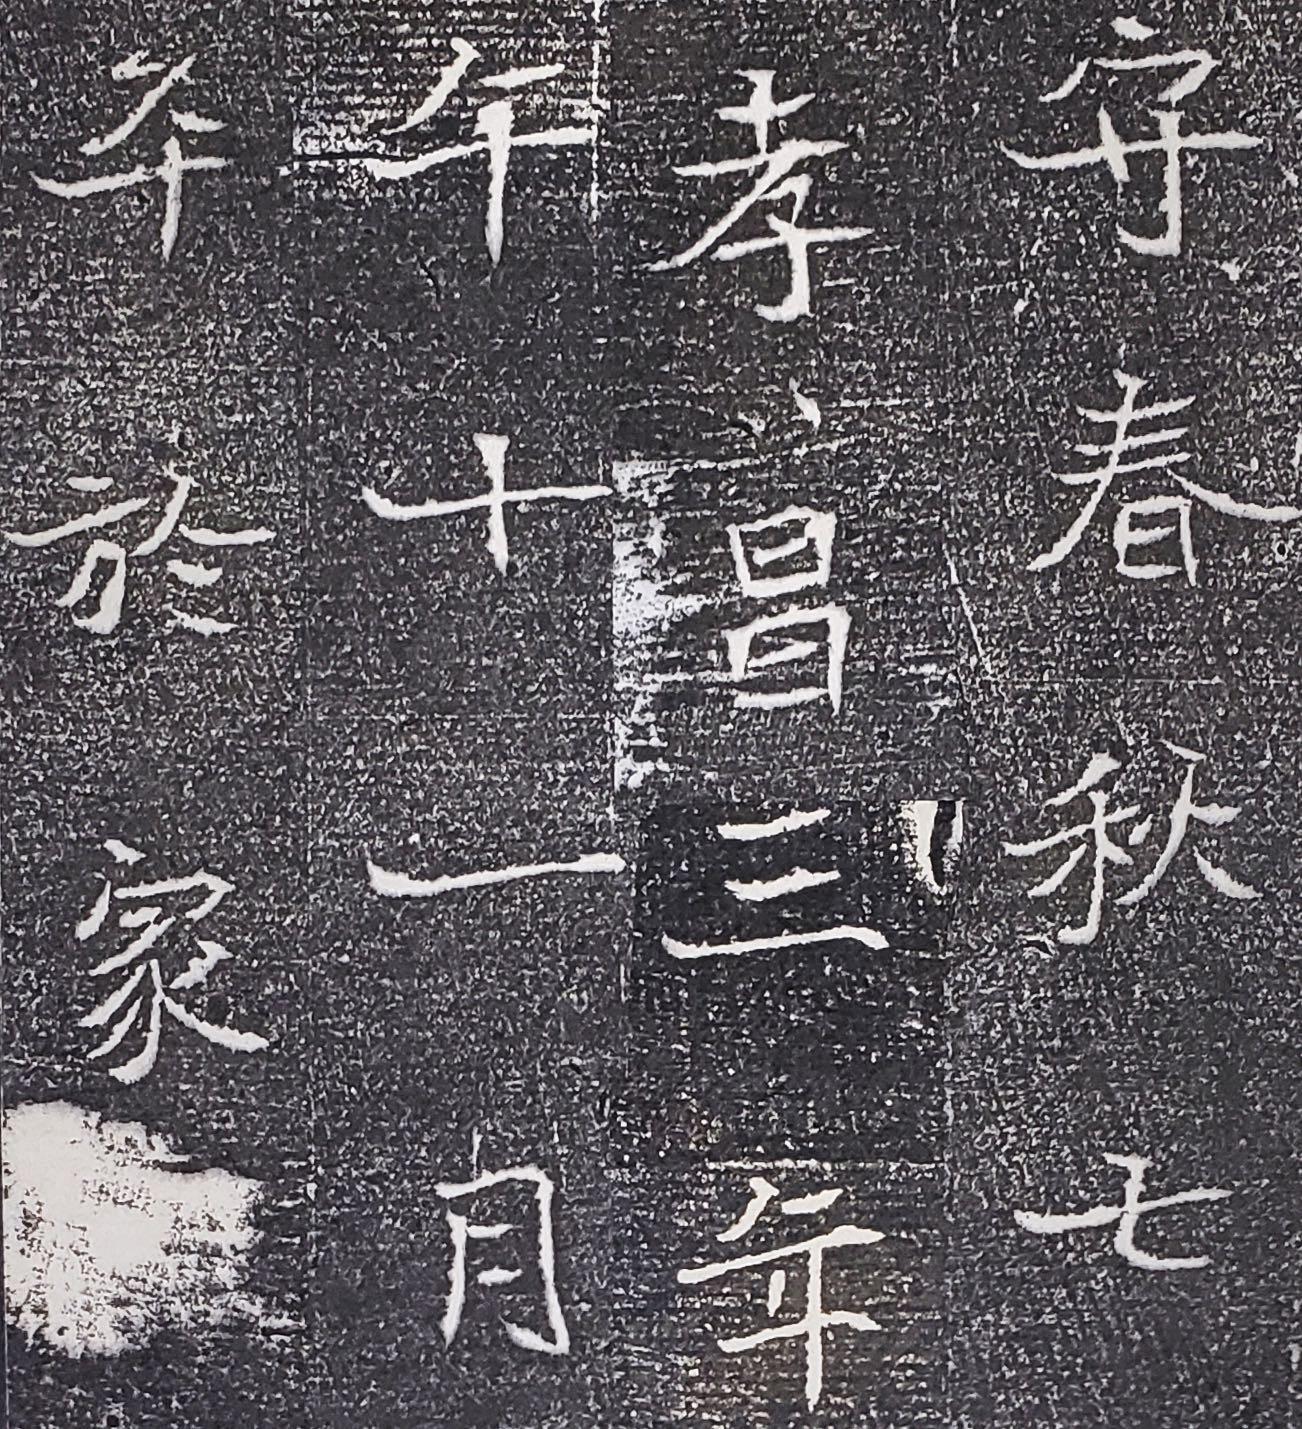 守春秋七
孝昌三年
午十一月
卒於家